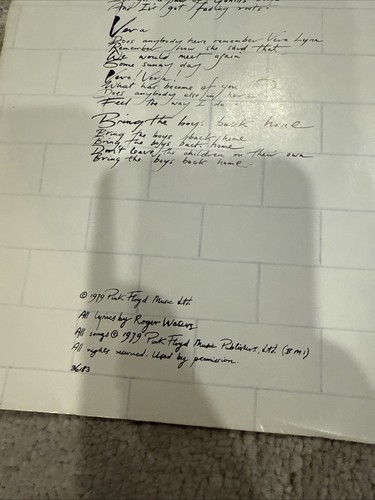 And I've got fading roots
Vera
Does anybody here remember Vera Lynn
Remember how she said that
We would meet again
Some sunny day
Vera! Vera!
What has become of you
Does anybody else in here
Feel the way I do
Bring the boys back home
Bring the boys back home
Bring the boys back home
Don't leave the children on their own
Bring the boys back home.
© 1979 Pink Floyd Music Ltd.
All lyrics by Roger Waters
All songs © 1979 Pink Floyd Music Publishers, Ltd. (BMI)
All rights reserved. Used by permission.
36183